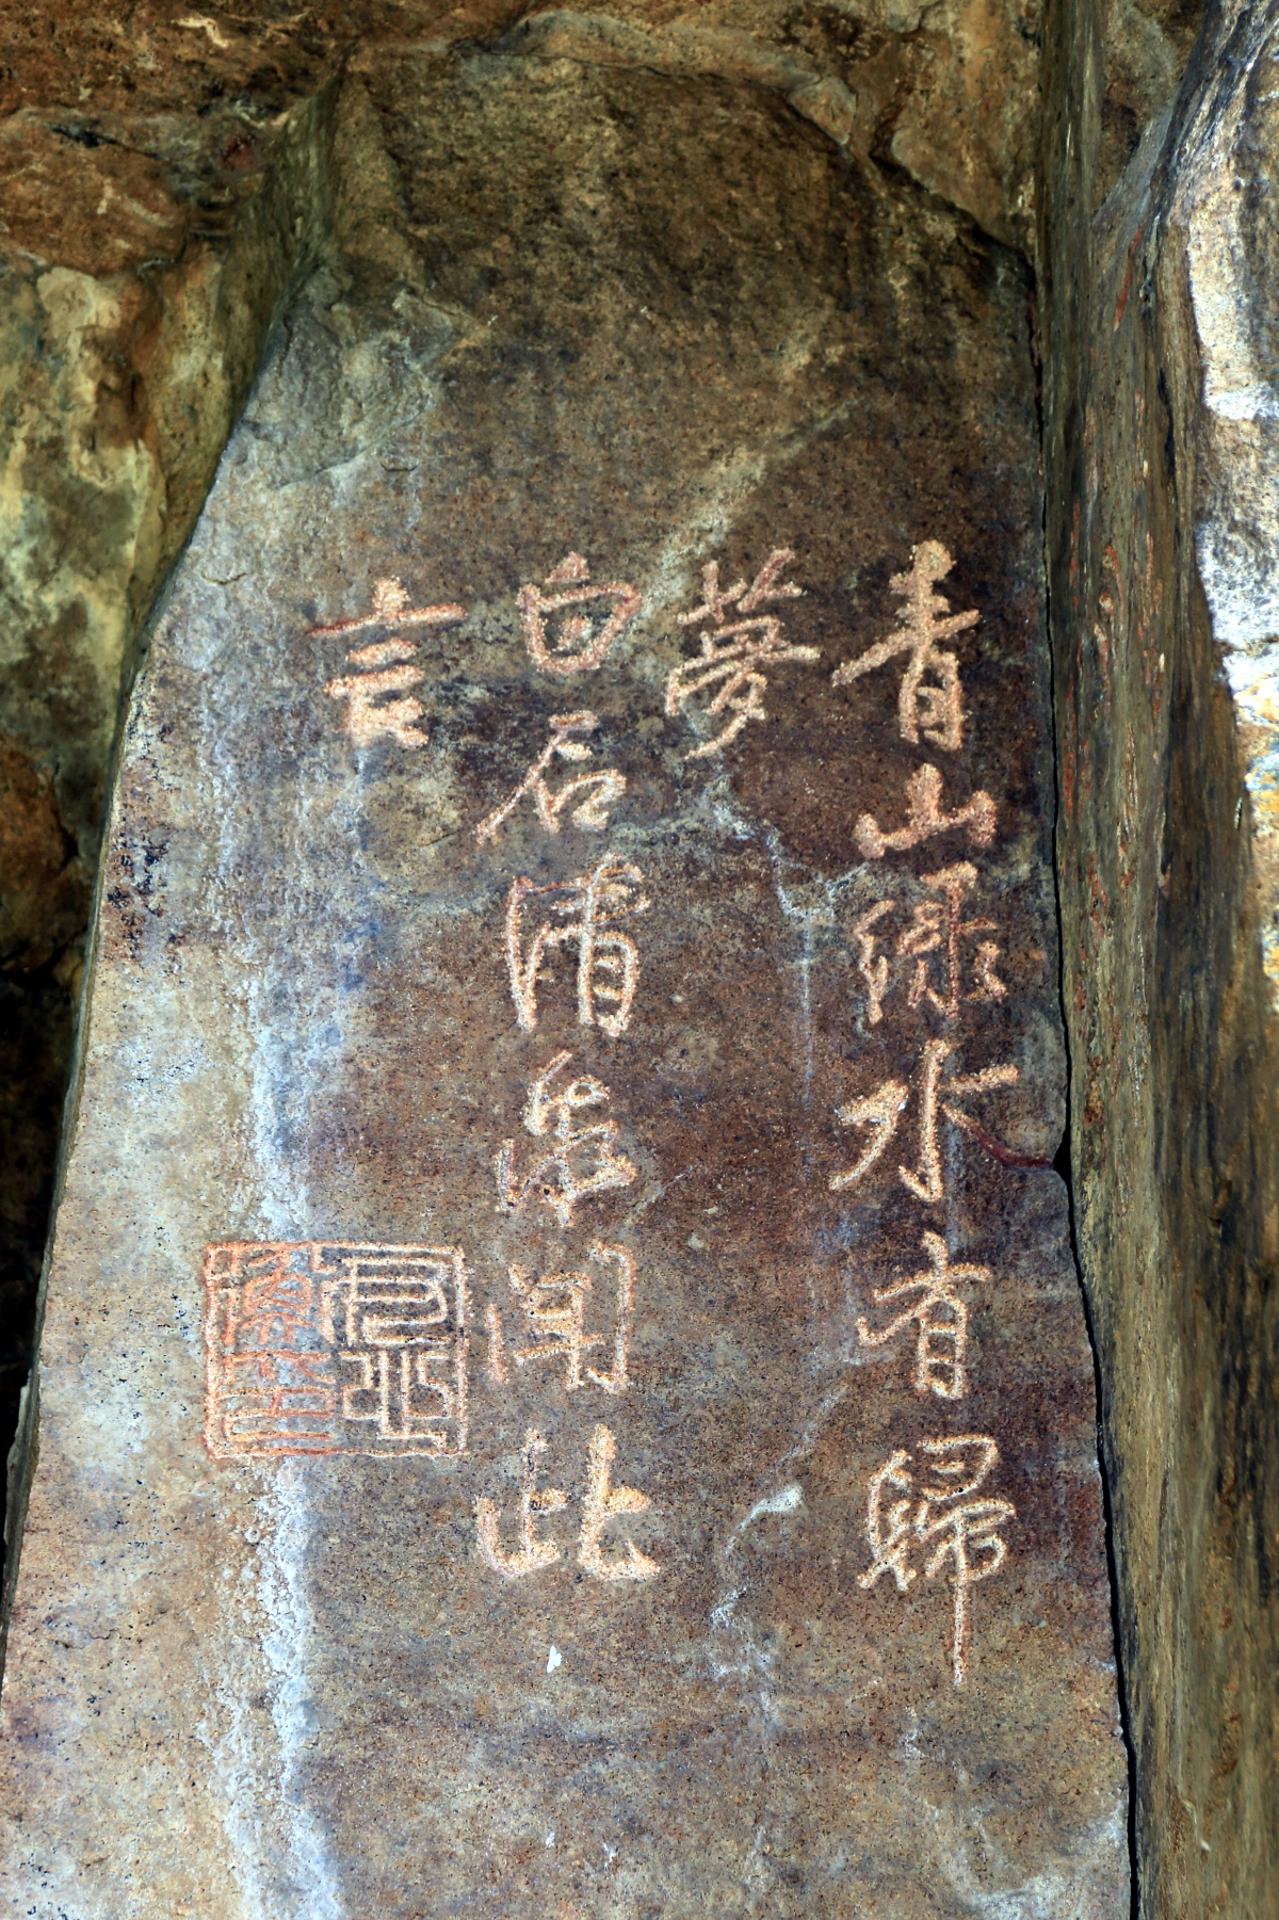 青山綠水有歸
夢
白石清泉聞此
言